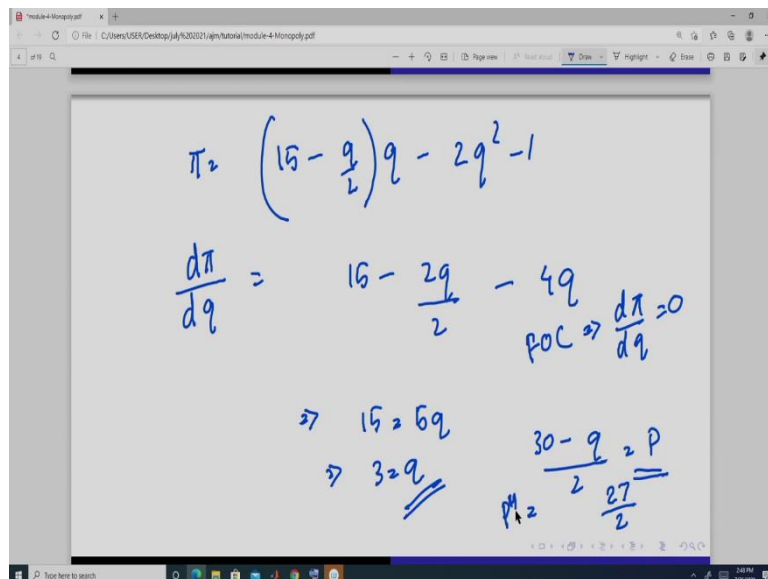 *module-4-Monopoly.pdf
File | C:/Users/USER/Desktop/july%202021/ajm/tutorial/module-4-Monopoly.pdf
4 of 19 Page view Read aloud Draw Highlight Erase
π = (15 - q/2) q - 2q² - 1
dπ/dq = 15 - 2q/2 - 4q
FOC ⇒ dπ/dq = 0
⇒ 15 = 5q
⇒ 3 = q
30 - q / 2 = P
pᴹ = 27/2
Type here to search
2:48 PM